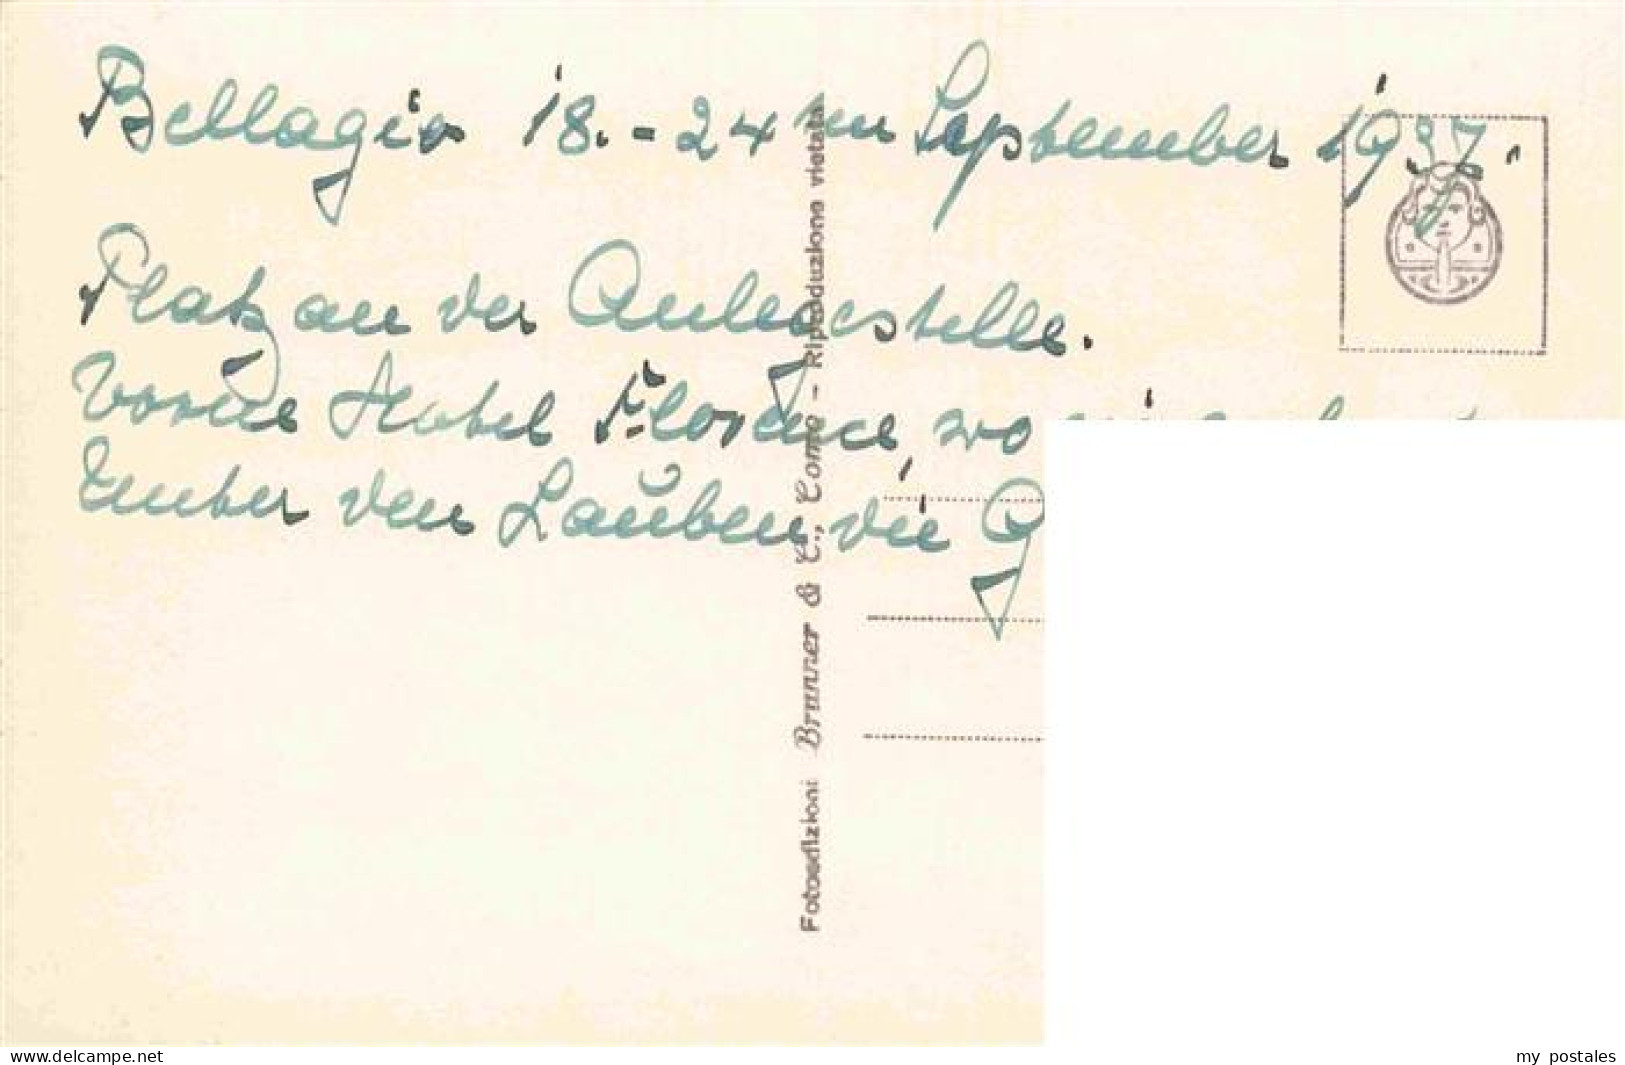 Bellagio 18.-24ten September 1937.
Platz an der Anlegestelle.
Vorne Hotel Florence, wo
Unter den Lauben die
Fotoedizioni Brunner & C., Como - Riproduzione vietata
my postales